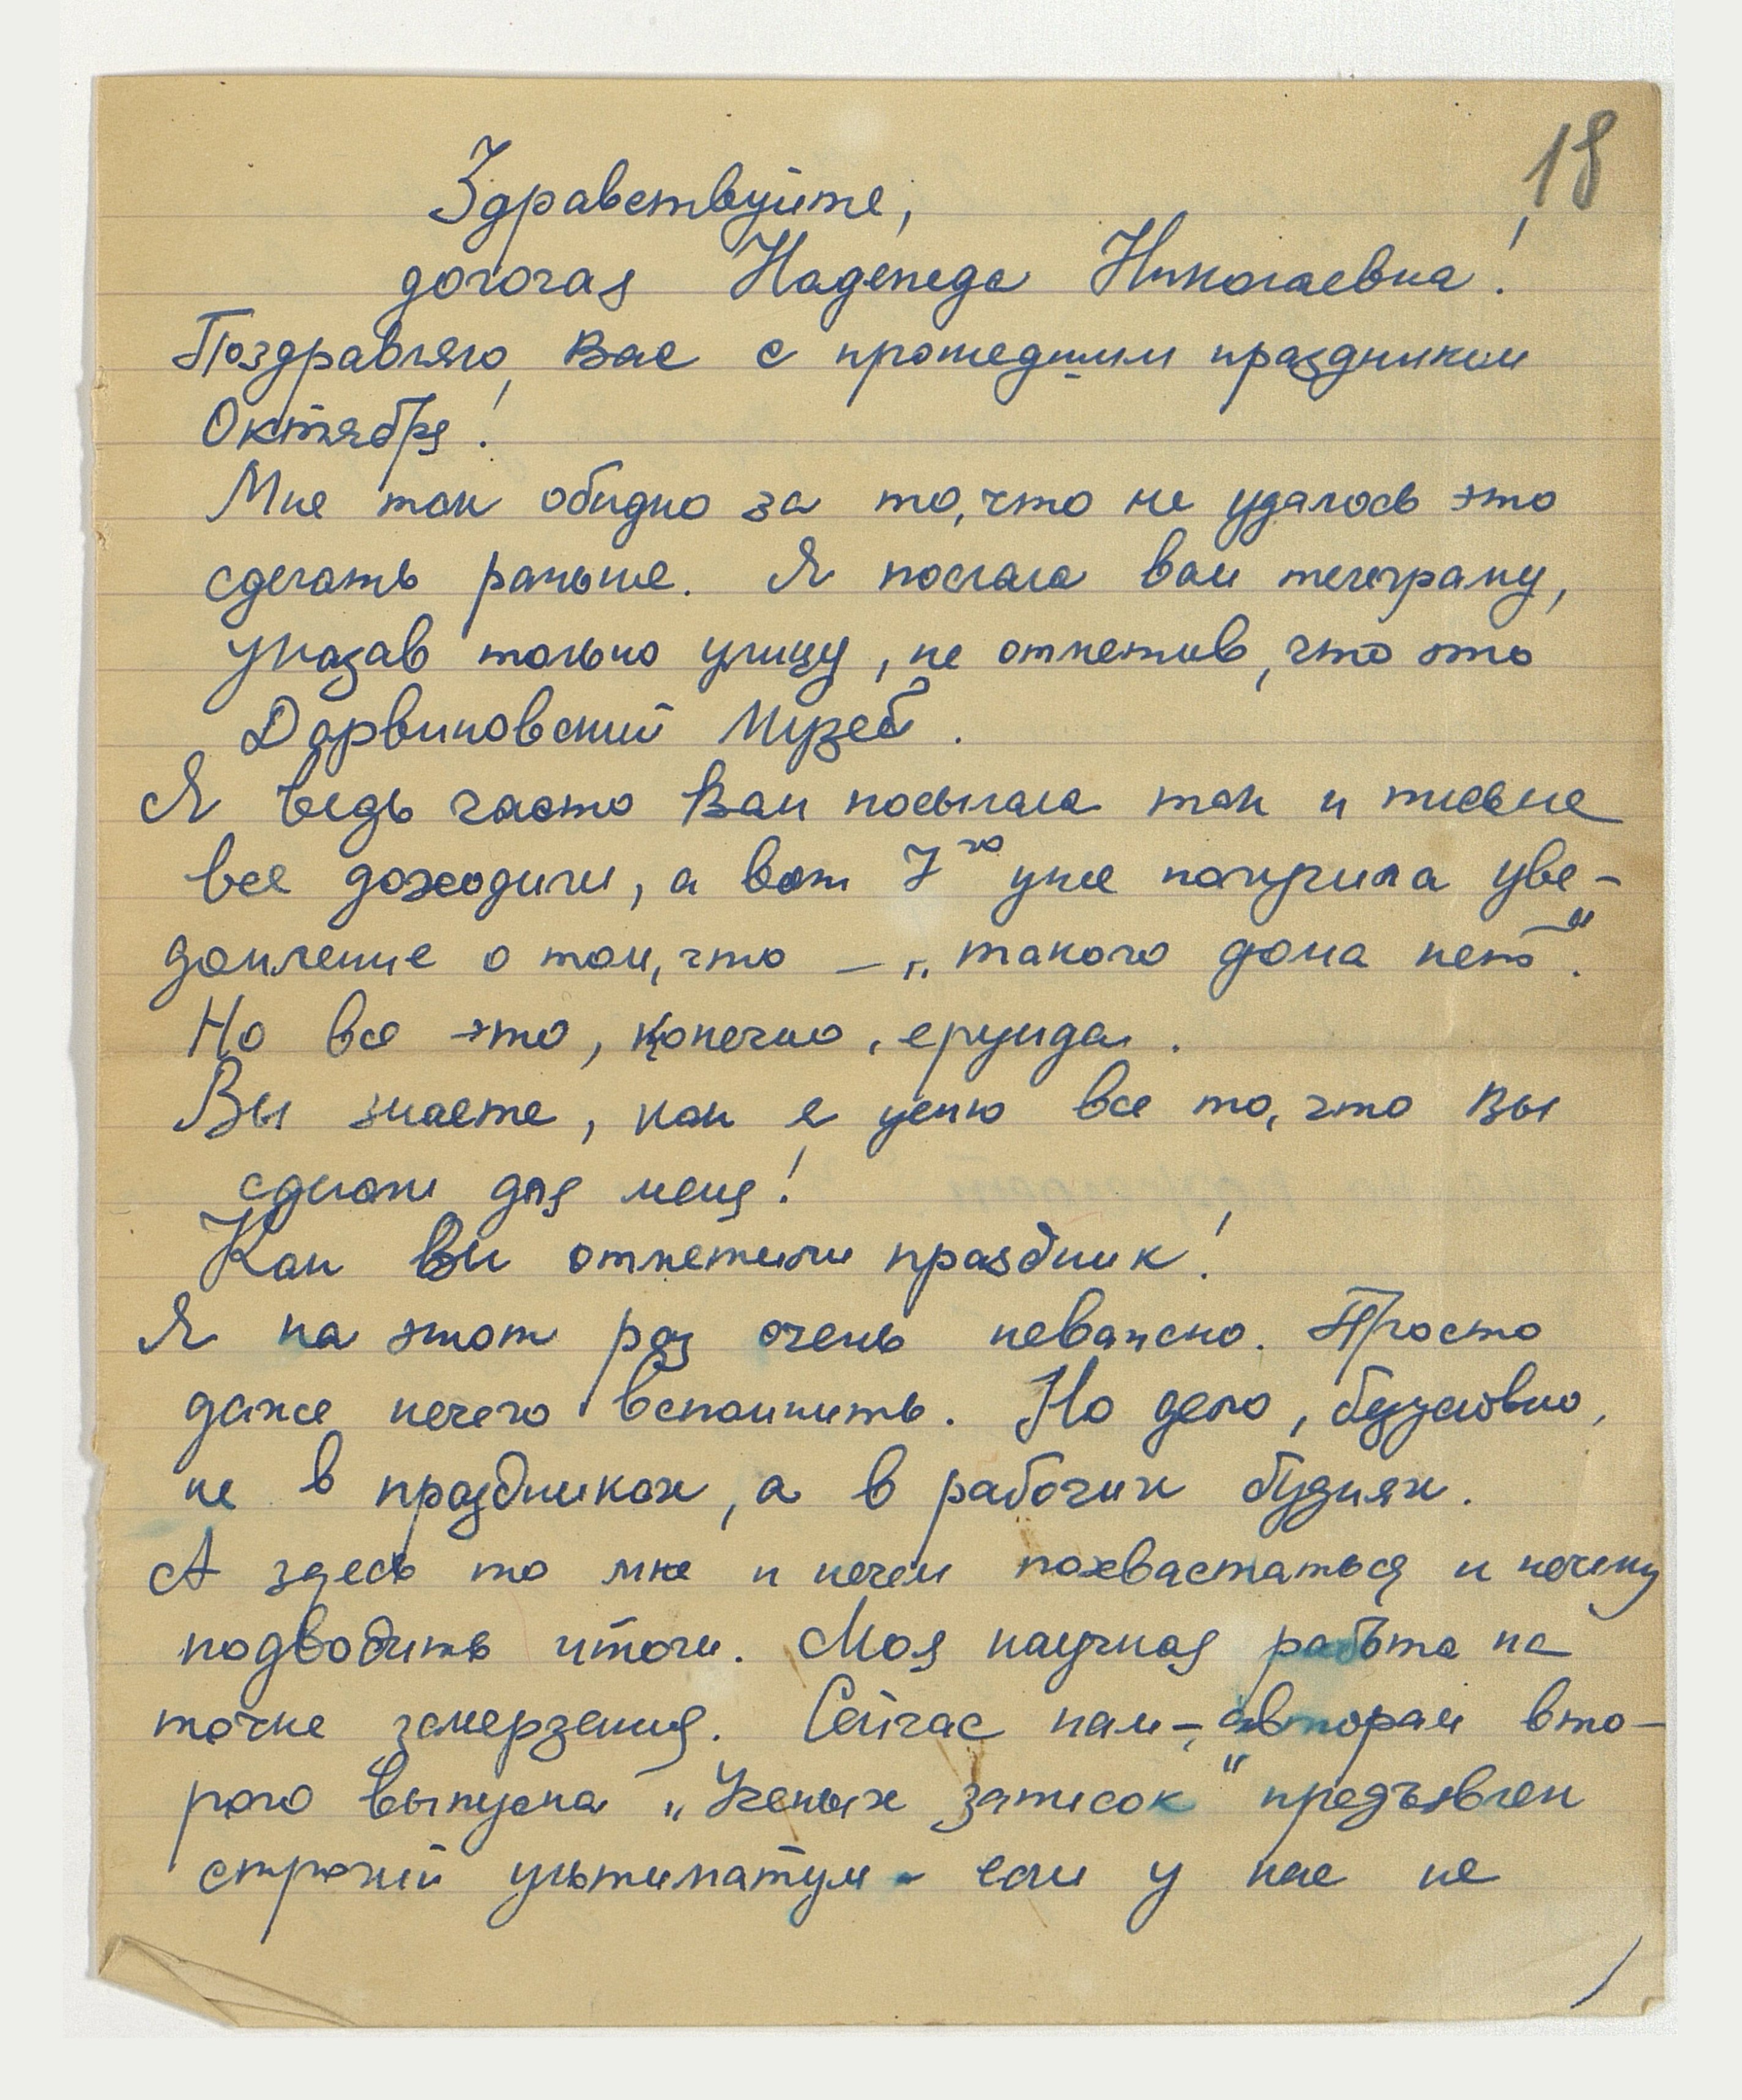 18
Здравствуйте,
дорогая Надежда Николаевна!
Поздравляю Вас с прошедшим праздником
Октября!
Мне так обидно за то, что не удалось это
сделать раньше. Я послала вам телеграму,
указав только улицу, не отметив, что это
Дарвиновский Музей.
Я ведь часто Вам посылала так и письма
все доходили, а вот 7го уже получила уве-
домление о том, что — „такого дома нет".
Но все это, конечно, ерунда.
Вы знаете, как я ценю все то, что Вы
сделали для меня!
Как Вы отметили праздник!
Я на этот раз очень неважно. Просто
даже нечего вспомнить. Но дело, безусловно,
не в праздниках, а в рабочих буднях.
А здесь то мне и нечем похвастаться и нечему
подводить итоги. Моя научная работа на
точке замерзания. Сейчас нам - авторам вто-
рого выпуска „Ученых записок" предъявлен
строгий ультиматум - если у нас не